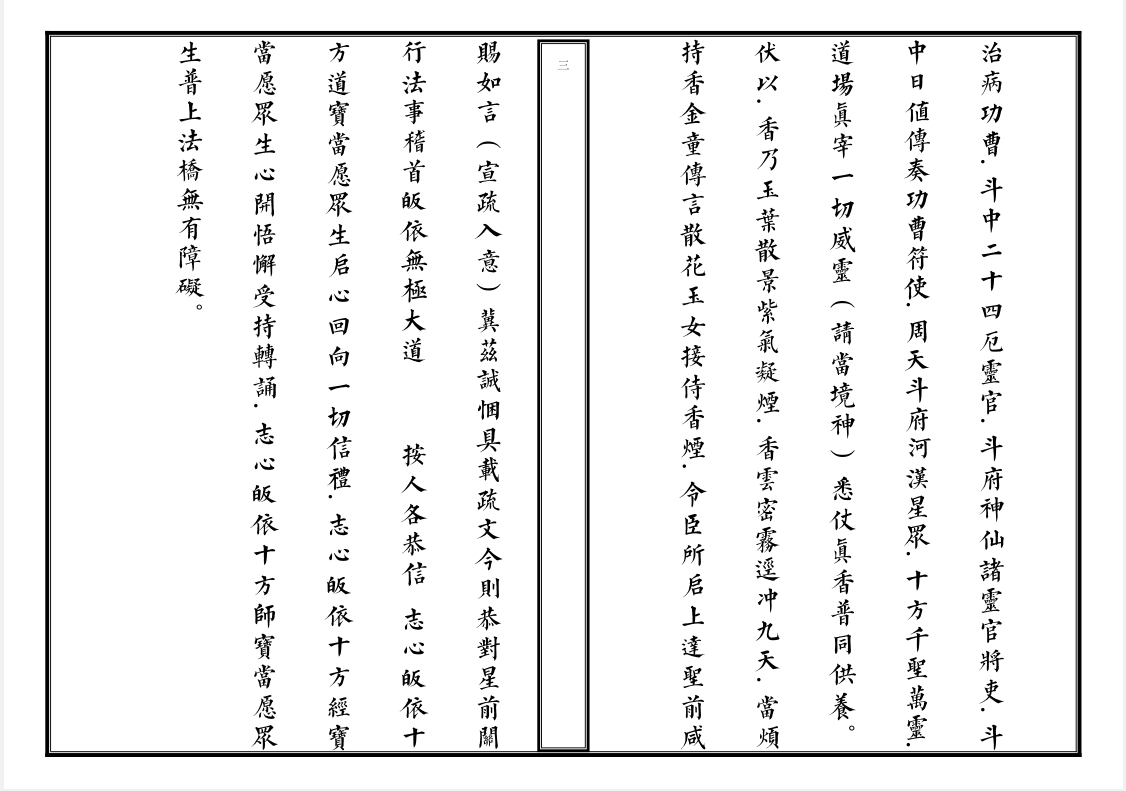 治病功曹．斗中二十四厄靈官．斗府神仙諸靈官將吏．斗
中日值傳奏功曹符使．周天斗府河漢星眾．十方千聖萬靈．
道場眞宰一切威靈（請當境神）悉仗眞香普同供養。
伏以．香乃玉葉散景紫氣凝煙．香雲密霧逕冲九天．當煩
持香金童傳言散花玉女接侍香煙．令臣所启上達聖前咸
三
賜如言（宣疏入意）冀茲誠悃具載疏文今則恭對星前關
行法事稽首皈依無極大道　　按人各恭信 志心皈依十
方道寶當愿眾生启心回向一切信禮．志心皈依十方經寶
當愿眾生心開悟懈受持轉誦．志心皈依十方師寶當愿眾
生普上法橋無有障礙。